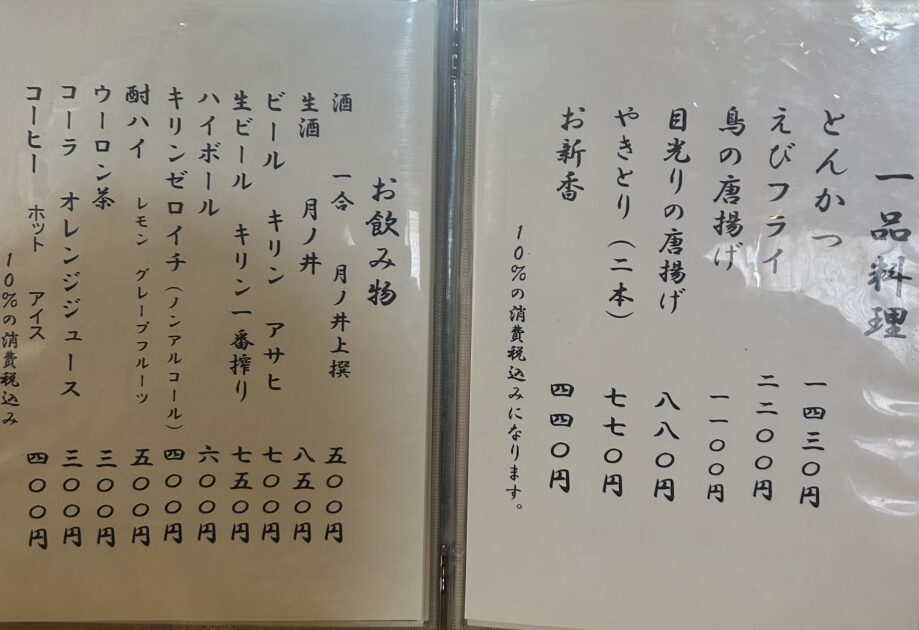 一品料理
とんかつ 一四三〇円
えびフライ 二二〇〇円
鳥の唐揚げ 一一〇〇円
目光りの唐揚げ 八八〇円
やきとり(二本) 七七〇円
お新香 四四〇円
10%の消費税込みになります。
お飲み物
酒 一合 月ノ井上撰 五〇〇円
生酒 月ノ井 八五〇円
ビール キリン アサヒ 七〇〇円
生ビール キリン一番搾り 七五〇円
ハイボール 六〇〇円
キリンゼロイチ(ノンアルコール) 四〇〇円
酎ハイ レモン グレープフルーツ 五〇〇円
ウーロン茶 三〇〇円
コーラ オレンジジュース 三〇〇円
コーヒー ホット アイス 四〇〇円
10%の消費税込み